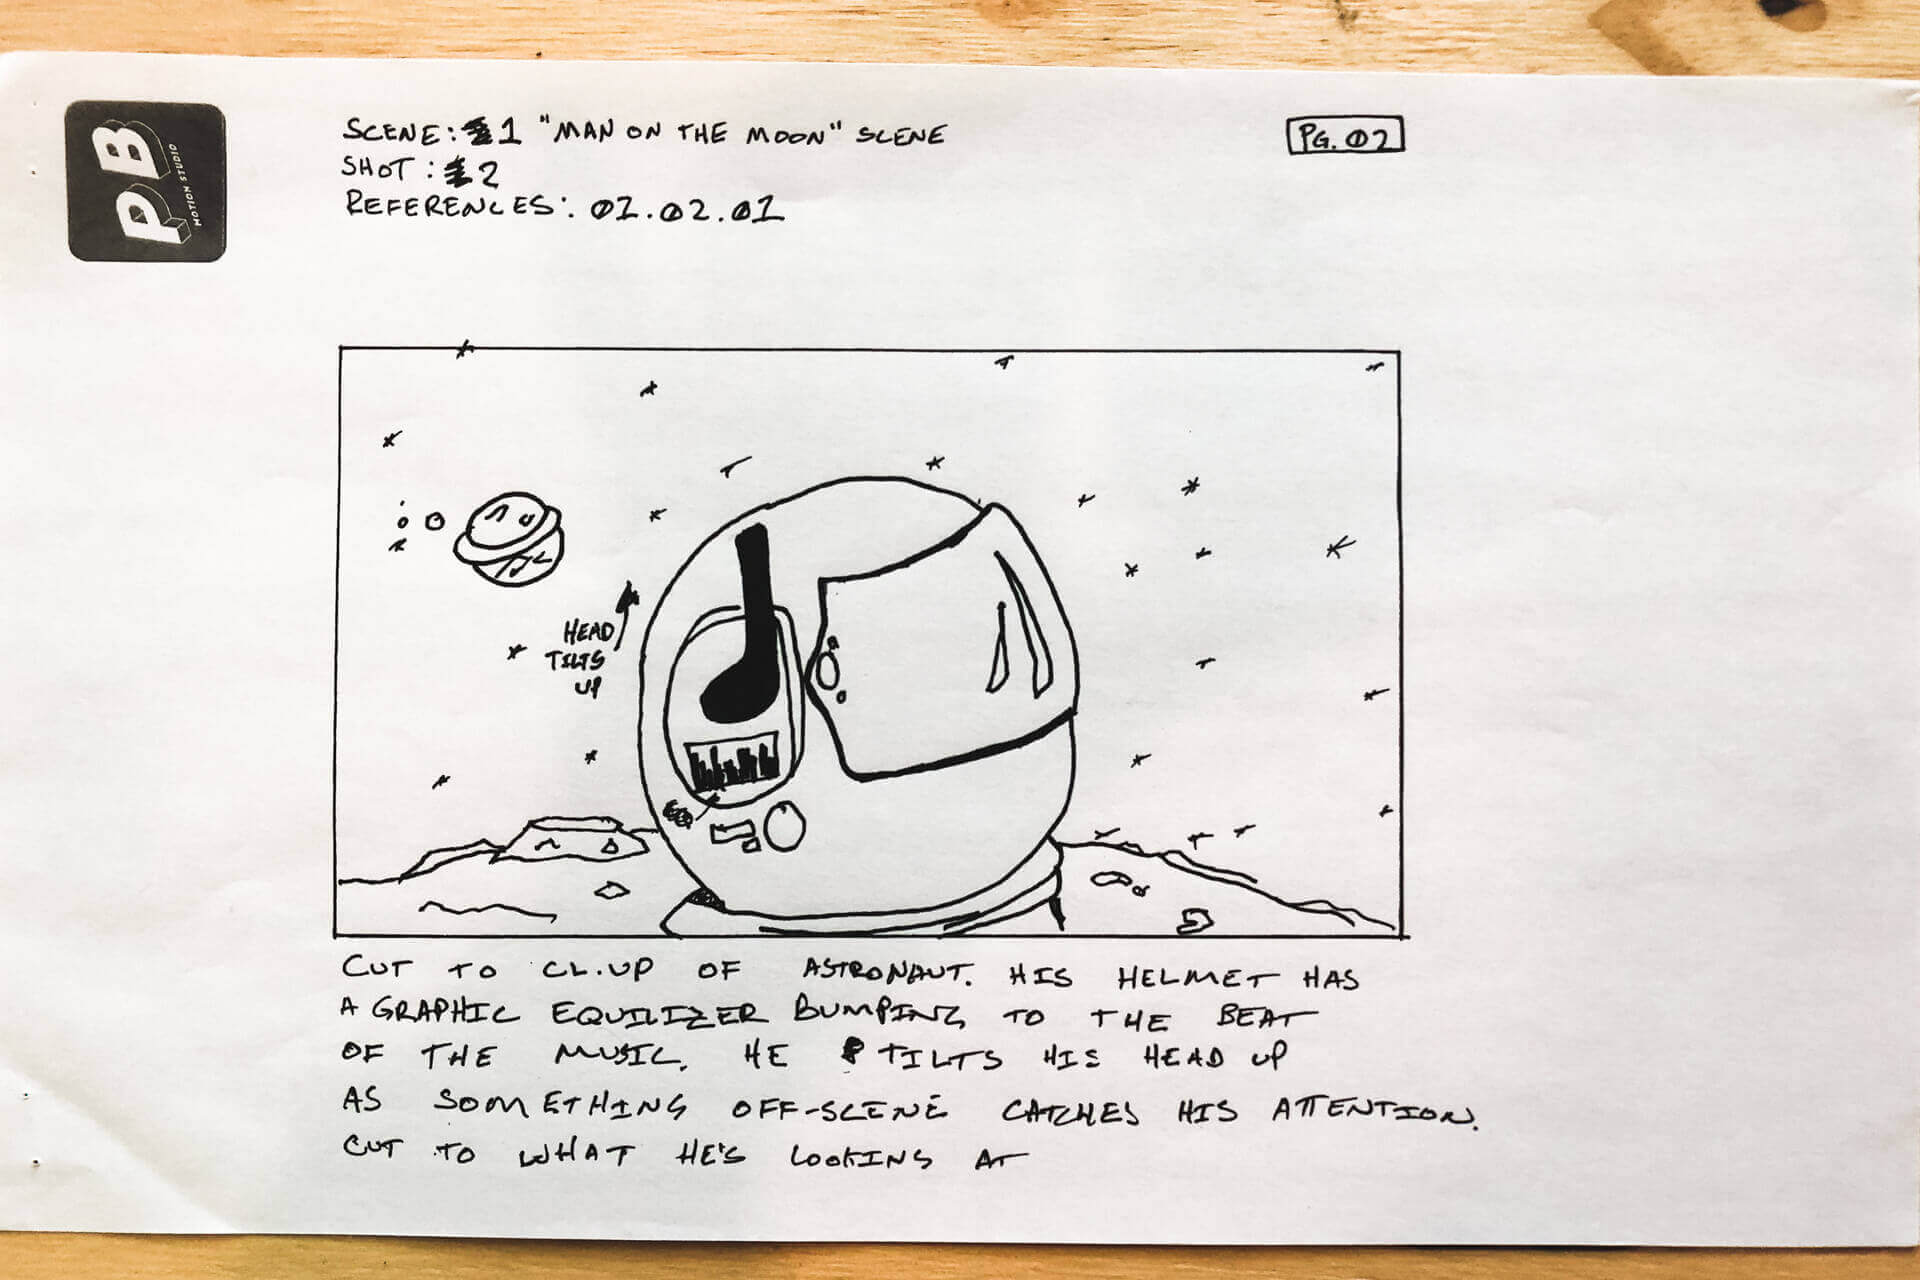 PB
MOTION STUDIO
SCENE: 1 "MAN ON THE MOON" SCENE
PG. 02
SHOT: 2
REFERENCES: 01.02.01
HEAD
TILTS
UP
CUT TO CL.UP OF ASTRONAUT. HIS HELMET HAS
A GRAPHIC EQUILIZER BUMPING TO THE BEAT
OF THE MUSIC. HE TILTS HIS HEAD UP
AS SOMETHING OFF-SCENE CATCHES HIS ATTENTION.
CUT TO WHAT HE'S LOOKING AT